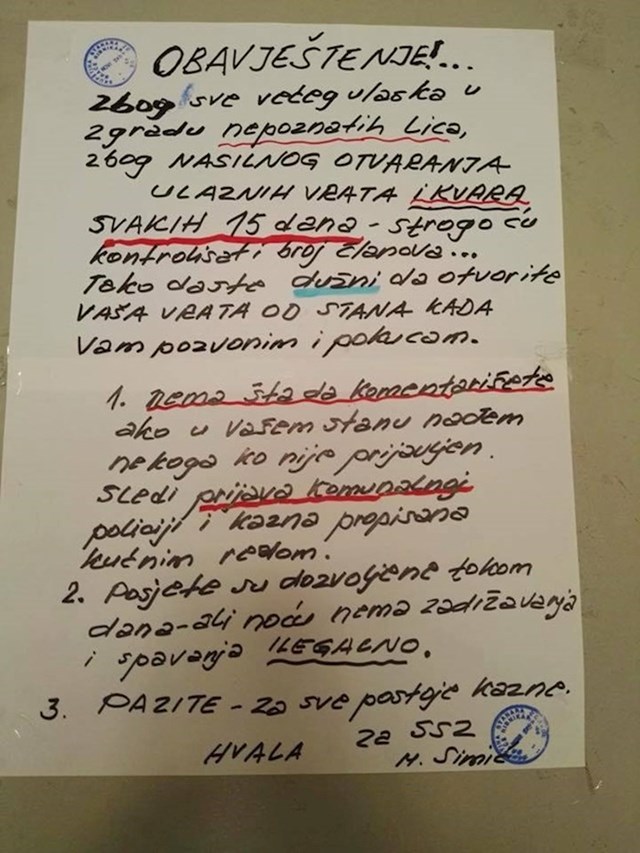 OBAVJEŠTENJE!...
zbog sve većeg ulaska u
zgradu nepoznatih Lica,
zbog NASILNOG OTVARANJA
ULAZNIH VRATA i KVARA
SVAKIH 15 dana - strogo ću
kontrolisati broj članova...
Tako daste dužni da otvorite
VAŠA VRATA OD STANA KADA
Vam pozvonim i pokucam.
1. nema šta da komentarišete
ako u Vašem stanu nađem
nekoga ko nije prijavljen.
sledi prijava komunalnoj
policiji i kazna propisana
kućnim redom.
2. Posjete su dozvoljene tokom
dana-ali noću nema zadržavanja
i spavanja ILEGALNO.
3. PAZITE - za sve postoje kazne.
HVALA za SSZ
M. Simić